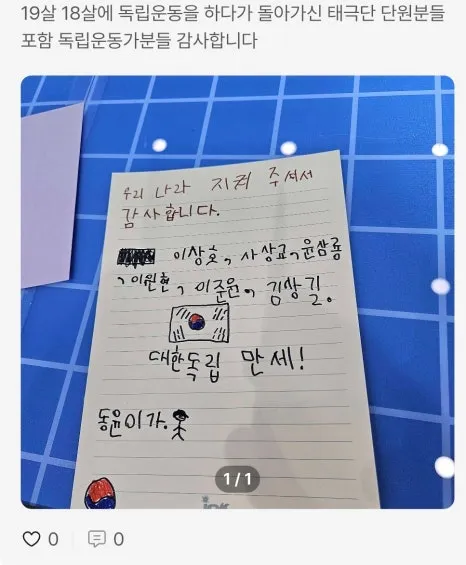 19살 18살에 독립운동을 하다가 돌아가신 태극단 단원분들
포함 독립운동가분들 감사합니다
우리 나라 지켜 주셔서
감사합니다.
이상호, 사상교, 윤삼룡
, 이원현, 이준윤, 김상길.
대한독립 만세!
동윤이가.
1/1
0 0